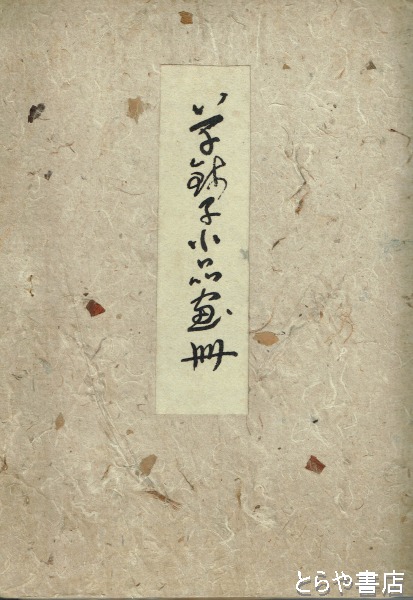 芋銭子小品画冊
とらや書店